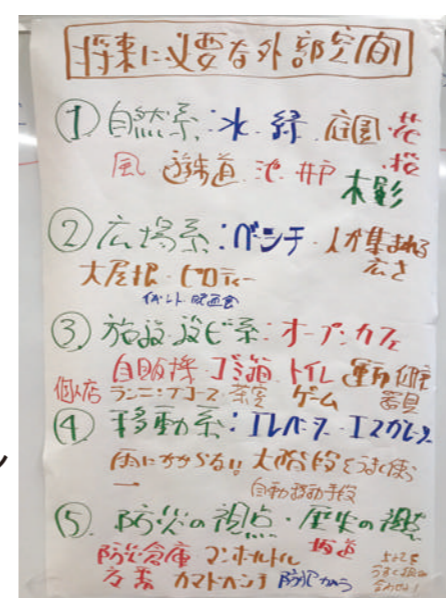 将来に必要な外部空間
① 自然系:水・緑・庭園・花
風 遊歩道 池 井戸 桜
木影
② 広場系:ベンチ・人が集まれる
広さ
大屋根・ピロティー
イベント 映画会
③ 施設設ビ系:オープンカフェ
自販機・ゴミ箱 トイレ 運動 健康
器具
個人店 ランニングコース 茶室 ゲーム
④ 移動系:エレベーター・エスカレーター
雨にかからない! 大階段をうまく使う
自動移動手段
⑤ 防災の視点・歴史の視点
防災倉庫 マンホールトイレ 坂道
カマドベンチ 防犯カメラ